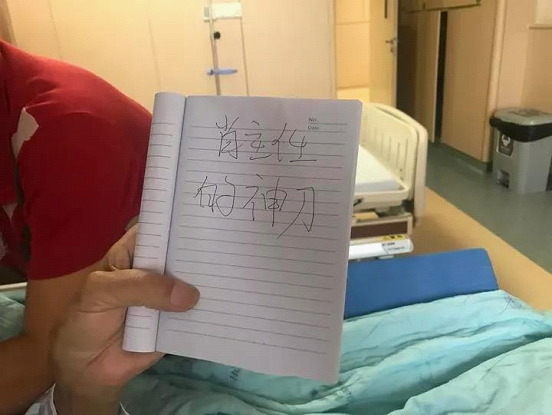 No.
Date
肖主任
的神刀